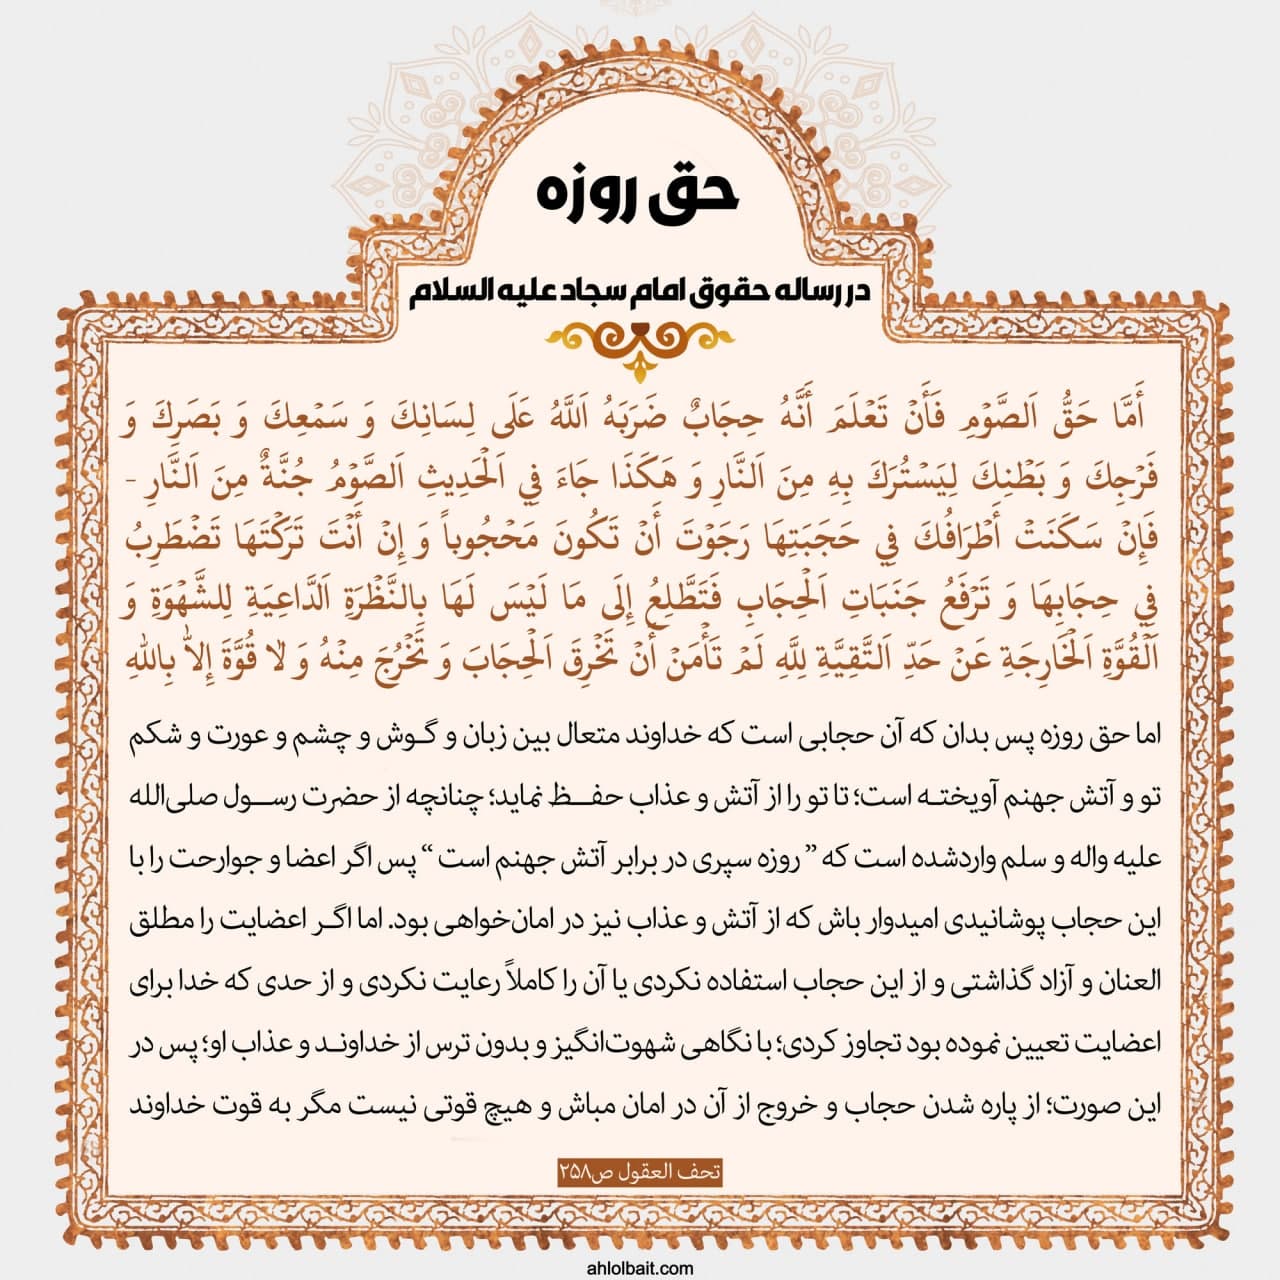 حق روزه
در رساله حقوق امام سجاد علیه السلام
أَمَّا حَقُّ اَلصَّوْمِ فَأَنْ تَعْلَمَ أَنَّهُ حِجَابٌ ضَرَبَهُ اَللَّهُ عَلَى لِسَانِكَ وَ سَمْعِكَ وَ بَصَرِكَ وَ
فَرْجِكَ وَ بَطْنِكَ لِيَسْتُرَكَ بِهِ مِنَ اَلنَّارِ وَ هَكَذَا جَاءَ فِي اَلْحَدِيثِ اَلصَّوْمُ جُنَّةٌ مِنَ اَلنَّارِ -
فَإِنْ سَكَنَتْ أَطْرَافُكَ فِي حَجَبَتِهَا رَجَوْتَ أَنْ تَكُونَ مَحْجُوباً وَ إِنْ أَنْتَ تَرَكْتَهَا تَضْطَرِبُ
فِي حِجَابِهَا وَ تَرْفَعُ جَنَبَاتِ اَلْحِجَابِ فَتَطَّلِعُ إِلَى مَا لَيْسَ لَهَا بِالنَّظْرَةِ اَلدَّاعِيَةِ لِلشَّهْوَةِ وَ
اَلْقُوَّةِ اَلْخَارِجَةِ عَنْ حَدِّ اَلتَّقِيَّةِ لِلَّهِ لَمْ تَأْمَنْ أَنْ تَخْرِقَ اَلْحِجَابَ وَ تَخْرُجَ مِنْهُ وَ لاَ قُوَّةَ إِلاَّ بِاللَّهِ
اما حق روزه پس بدان که آن حجابی است که خداوند متعال بین زبان و گوش و چشم و عورت و شکم
تو و آتش جهنم آویخته است؛ تا تو را از آتش و عذاب حفظ نماید؛ چنانچه از حضرت رسول صلی‌الله
علیه واله و سلم واردشده است که ” روزه سپری در برابر آتش جهنم است “ پس اگر اعضا و جوارحت را با
این حجاب پوشانیدی امیدوار باش که از آتش و عذاب نیز در امان‌خواهی بود. اما اگر اعضایت را مطلق
العنان و آزاد گذاشتی و از این حجاب استفاده نکردی یا آن را کاملاً رعایت نکردی و از حدی که خدا برای
اعضایت تعیین نموده بود تجاوز کردی؛ با نگاهی شهوت‌انگیز و بدون ترس از خداوند و عذاب او؛ پس در
این صورت؛ از پاره شدن حجاب و خروج از آن در امان مباش و هیچ قوتی نیست مگر به قوت خداوند
تحف العقول ص۲۵۸
ahlolbait.com